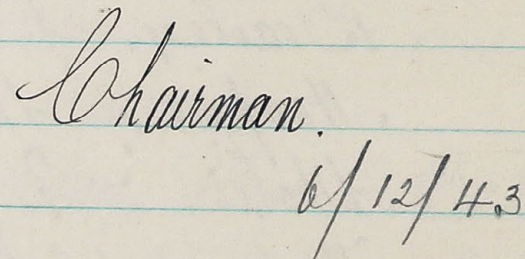 Chairman.
6/12/43